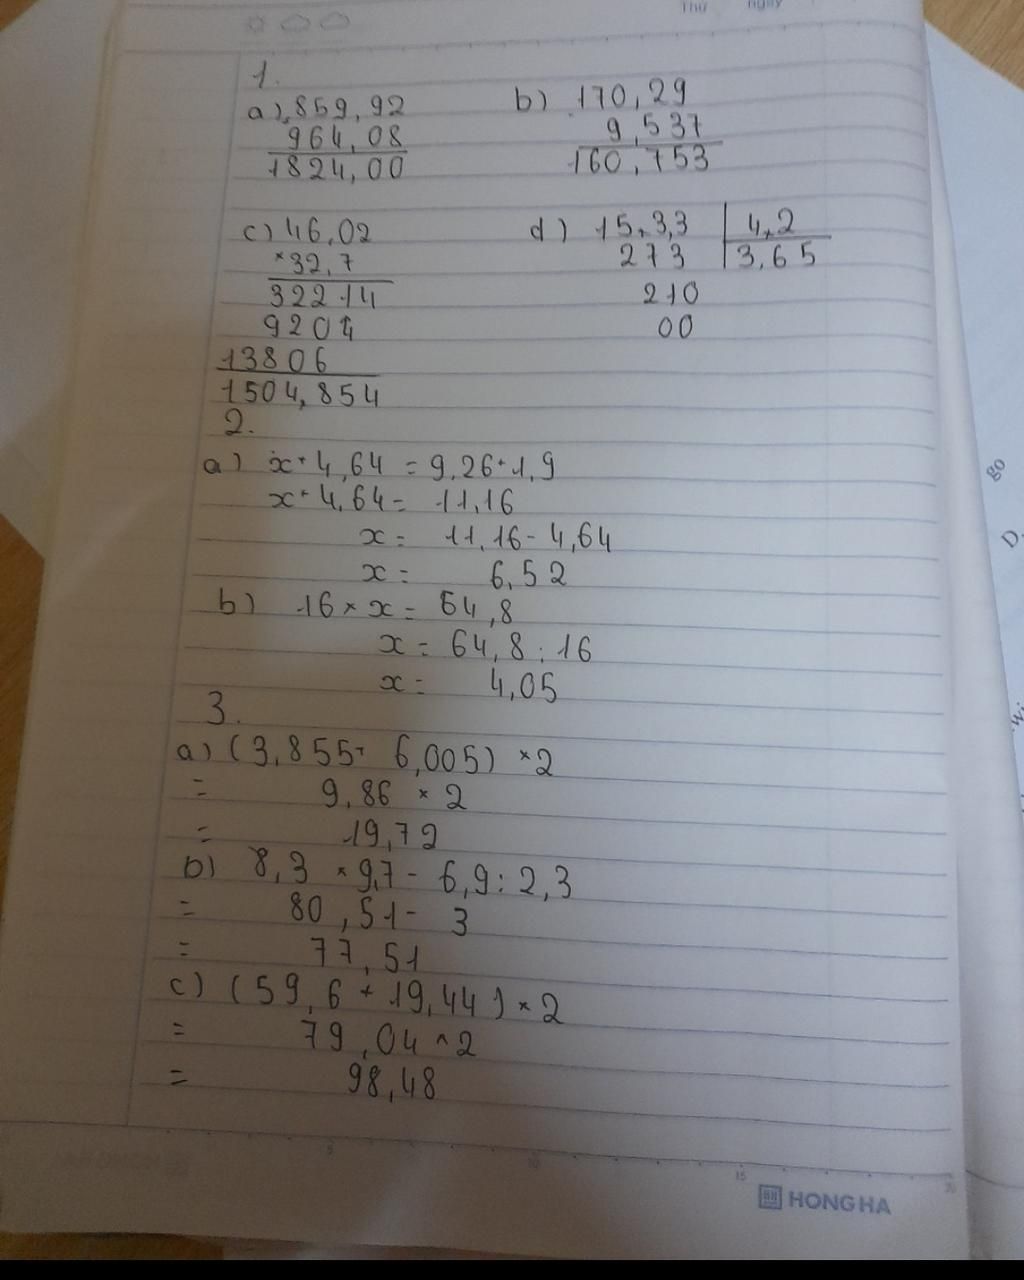 Thứ ngày
1.
a) 859,92 b) 170,29
964,08 9,537
1824,00 160,753
c) 46,02 d) 15,3,3 4,2
× 32,7 273 3,65
32214 210
9204 00
13806
1504,854
2.
a) x + 4,64 = 9,26 + 1,9
x + 4,64 = 11,16
x = 11,16 - 4,64
x = 6,52
b) 16 × x = 64,8
x = 64,8 : 16
x = 4,05
3.
a) (3,855 + 6,005) × 2
= 9,86 × 2
= 19,72
b) 8,3 × 9,7 - 6,9 : 2,3
= 80,51 - 3
= 77,51
c) (59,6 + 19,44) × 2
= 79,04 × 2
= 98,48
5 10 15 20
HONG HA
go
D.